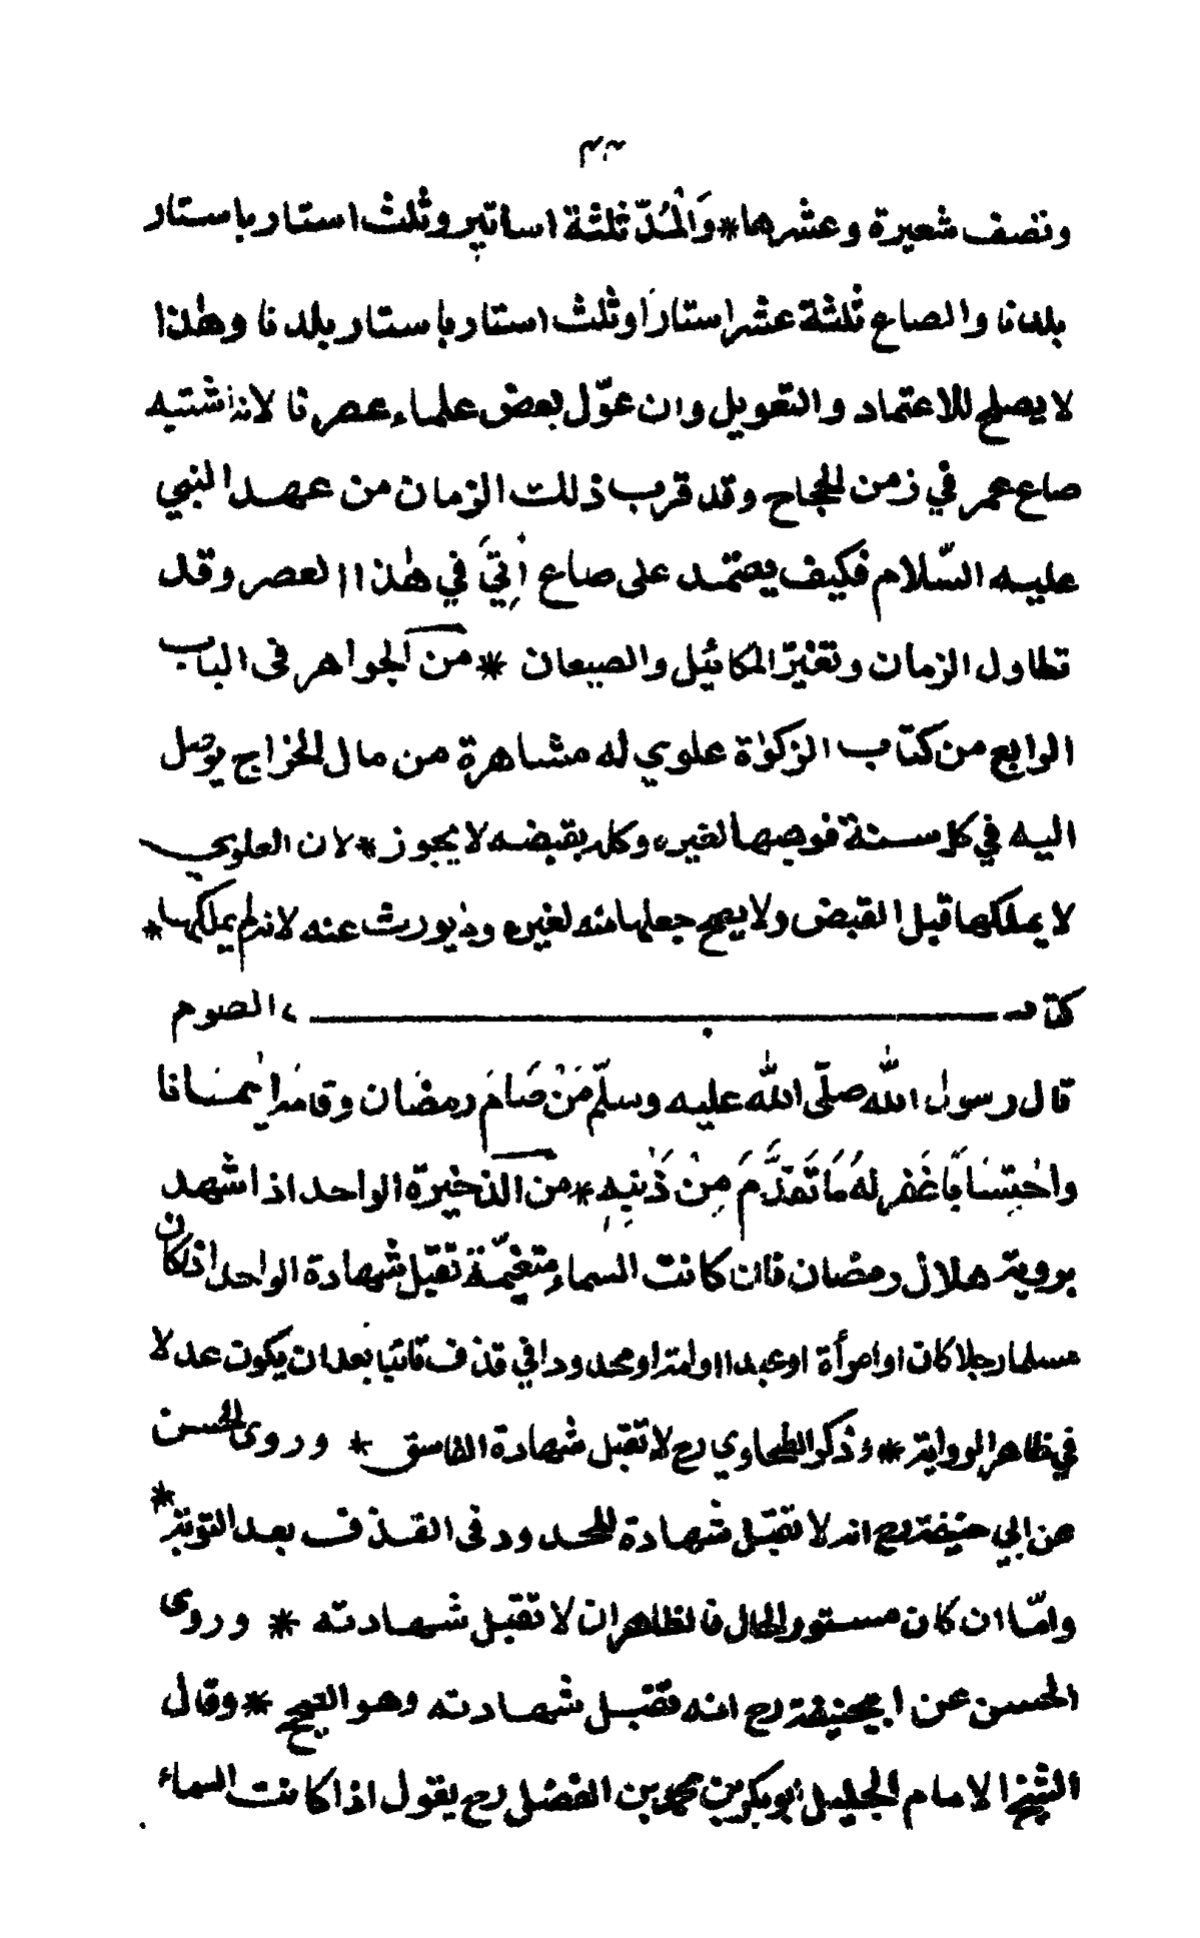 ونصف شعيرة وعشرها * وَالْمُدّ ثلثة اساتير وثلث استار باستار
بلدنا والصاع ثلثة عشر استارًا وثلث استار باستار بلدنا وهٰذا
لا يصلح للاعتماد والتعويل وان عوّل بعض علماء عصرنا لانه اشتبه
صاع عمر في زمن الحجاج وقد قرب ذلك الزمان من عهد النبي
عليه السّلام فكيف يعتمد على صاع أُتِيَ في هٰذا العصر وقد
تطاول الزمان وتغيّر المكائيل والصيعان * من الجواهر فى الباب
الرابع من كتاب الزكوٰة علوي له مشاهرة من مال الخراج يوصل
اليه في كل سنة فوهبها لغيره وكله بقبضه لا يجوز * لان العلوي
لا يملكها قبل القبض ولا يصح جعلها منه لغيره ولا يورث عنه لانه لم يملكها *
كتاب الصوم
قال رسول الله صلّى الله عليه وسلّم مَنْ صَامَ رمضان وقامه ايمانا
واحْتِسَابًا غَفر لهُ مَا تَقَدَّمَ مِنْ ذَنْبِهِ * من الذخيرة الواحد اذا شهد
بروية هلال رمضان فان كانت السماء متغيّمة تقبل شهادة الواحد اذا كان
مسلما رجلا كان او امرأة او عبدا او امة او محدودا في قذف تائبا بعد ان يكون عدلا
في ظاهر الرواية * وذكر الطحاوي رح لا تقبل شهادة الفاسق * وروى الحسن
عن ابي حنيفة رح انه لا تقبل شهادة المحدود فى القذف بعد التوبة *
وامّا ان كان مستور الحال فالظاهر ان لا تقبل شهادته * وروى
الحسن عن ابيحنيفة رح انه تقبل شهادته وهو الصحيح * وقال
الشيخ الامام الجليل ابو بكر بن محمد بن الفضل رح يقول اذا كانت السماء